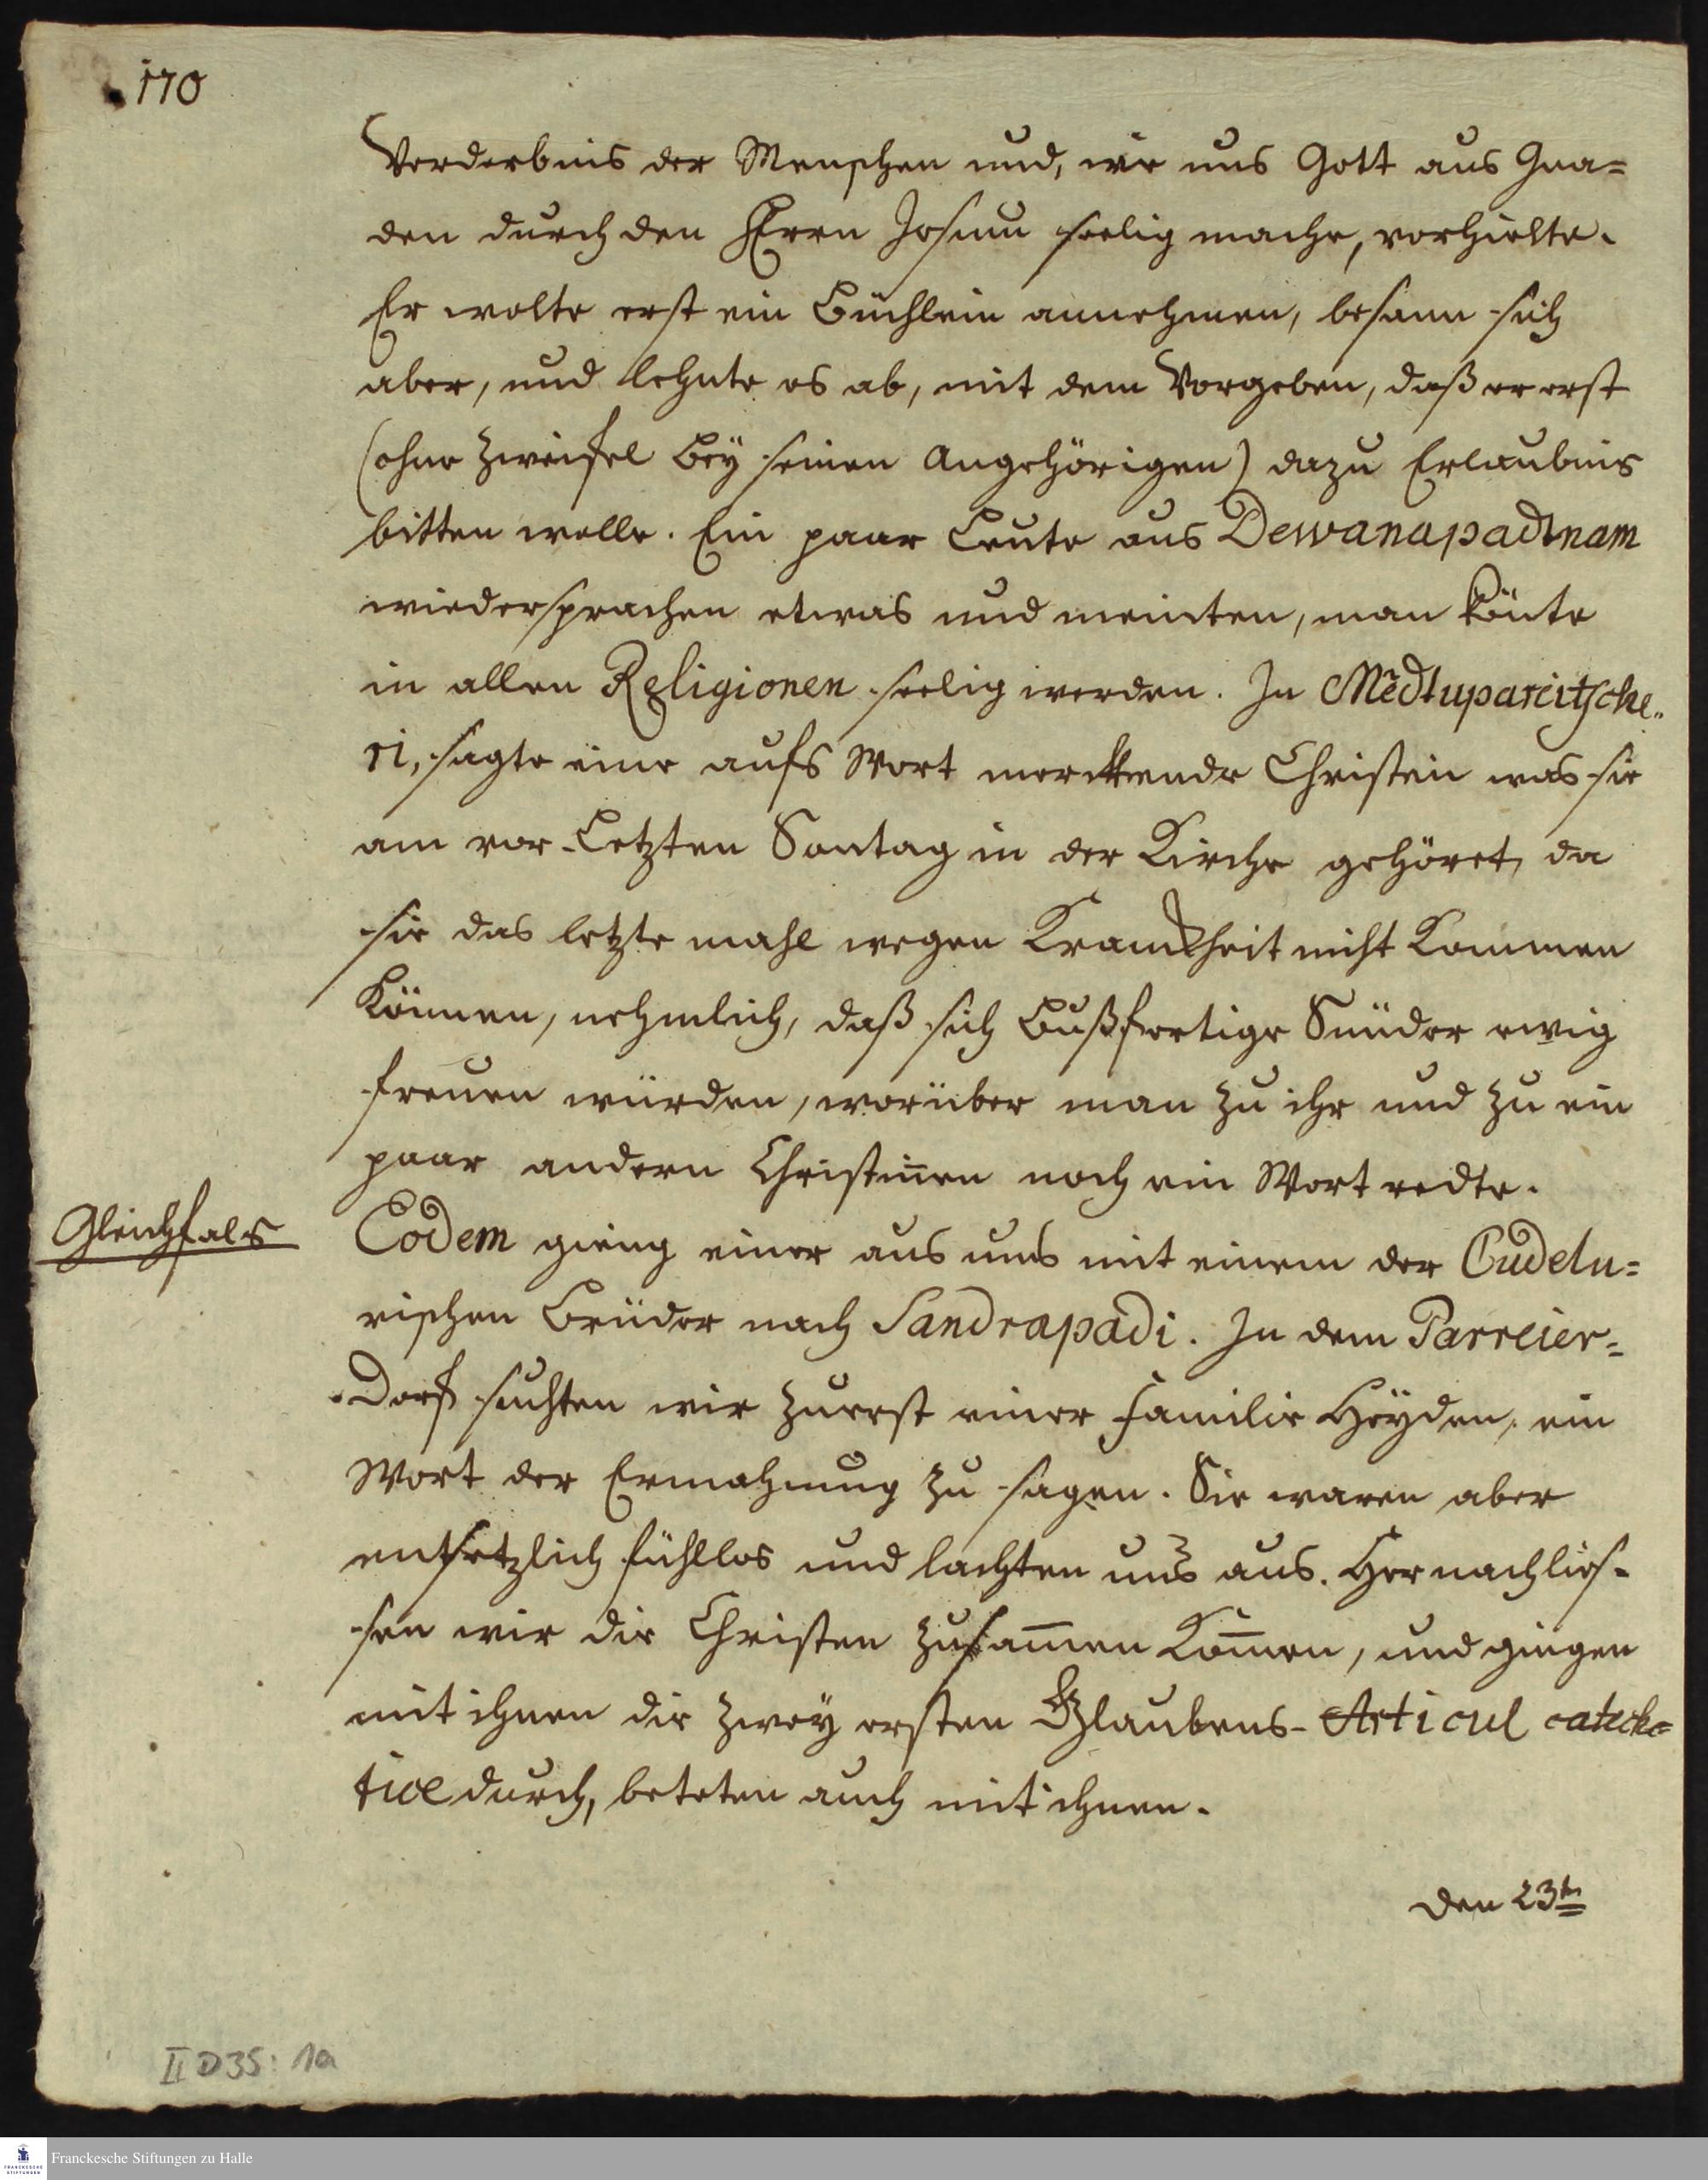 170
Verderbnis der Menschen und, wie uns Gott aus Gna=
den durch den HErrn Jesum seelig mache, vorhielte.
Er wolte erst ein Büchlein annehmen, besann sich
aber, und lehnte es ab, mit dem Vorgeben, daß er erst
(ohne Zweifel bey seinen Angehörigen) dazu Erlaubnis
bitten wolle. Ein paar Leute aus Dewanapadtnam
wiedersprachen etwas und meinten, man könte
in allen Religionen seelig werden. In Mĕdtupareirtsche..
ri, sagte eine aufs Wort merckende Christin was sie
am vor-letzten Sontag in der Kirche gehöret, da
sie das letzte mahl wegen Kranckheit nicht kommen
können, nehmlich, daß sich bußfertige Sünder ewig
freuen würden, worüber man zu ihr und zu ein
paar andern Christinnen noch ein Wort redte.
Gleichfals
Eodem gieng einer aus uns mit einem der Cudelu=
rischen Brüder nach Sandrapādi. In dem Parreier=
Dorf suchten wir zuerst einer Familie Heyden, ein
Wort der Ermahnung zu sagen. Sie waren aber
entsetzlich fühllos und lachten uns aus. Hernach lies-
sen wir die Christen zusam̄en kom̄en, und giengen
mit ihnen die zwey ersten Glaubens-Articul cateche=
tice durch, beteten auch mit ihnen.
Den 23ten
II D35: 1a
Franckesche Stiftungen zu Halle
FRANCKESCHE
STIFTUNGEN